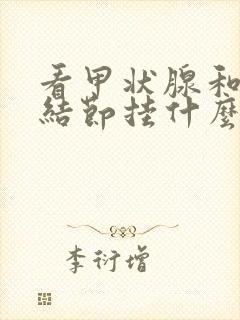 看甲状腺和
結節挂什麼
李衍增